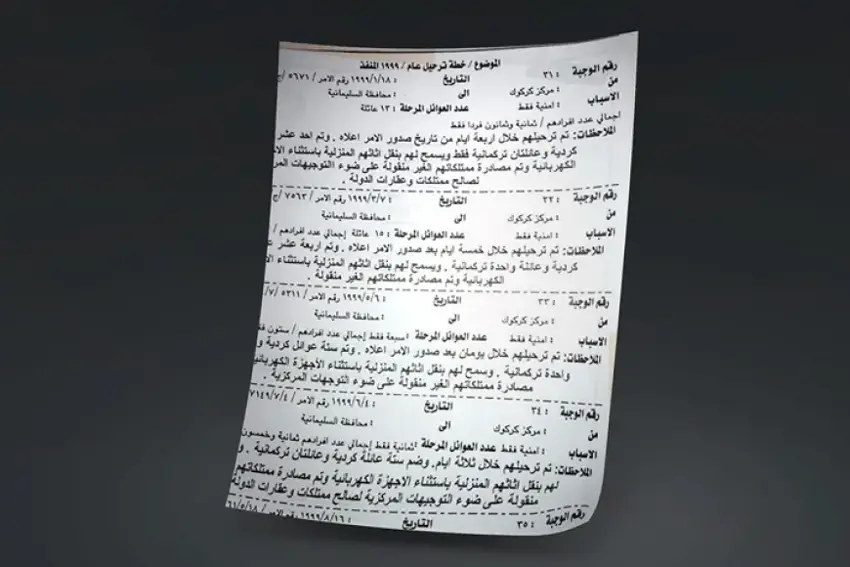 الموضوع / خطة ترحيل عام / ١٩٩٩ المنفذة
رقم الوجبة : ٣١ التاريخ : ١٩٩٩/١/١٨ رقم الامر / ٥٦٧١ /ج
من : مركز كركوك الى : محافظة السليمانية
الاسباب : امنية فقط عدد العوائل المرحلة : ١٣ عائلة
اجمالي عدد افرادهم / ثمانية وثمانون فردا فقط
الملاحظات: تم ترحيلهم خلال اربعة ايام من تاريخ صدور الامر اعلاه . وتم احد عشر
كردية وعائلتان تركمانية فقط ويسمح لهم بنقل اثاثهم المنزلية باستثناء
الكهربائية وتم مصادرة ممتلكاتهم الغير منقولة على ضوء التوجيهات
لصالح ممتلكات وعقارات الدولة .
رقم الوجبة : ٣٢ التاريخ : ١٩٩٩/٣/٧ رقم الامر / ٧٥٦٣ /ج
من : مركز كركوك الى : محافظة السليمانية
الاسباب : امنية فقط عدد العوائل المرحلة : ١٥ عائلة إجمالي عدد افرادهم /
الملاحظات: تم ترحيلهم خلال خمسة ايام بعد صدور الامر اعلاه . وتم اربعة عشر
كردية وعائلة واحدة تركمانية . ويسمح لهم بنقل اثاثهم المنزلية باستثناء
الكهربائية وتم مصادرة ممتلكاتهم الغير منقولة .
رقم الوجبة : ٣٣ التاريخ : ١٩٩٩/٥/٦ رقم الامر / ٥٣١١ /٧/
من : مركز كركوك الى : محافظة السليمانية
الاسباب : امنية فقط عدد العوائل المرحلة : سبعة فقط إجمالي عدد افرادهم / ستون
الملاحظات: تم ترحيلهم خلال يومان بعد صدور الامر اعلاه . وتم ستة عوائل كردية و
واحدة تركمانية . وسمح لهم بنقل اثاثهم المنزلية باستثناء الأجهزة الكهربائية
مصادرة ممتلكاتهم الغير منقولة على ضوء التوجهات المركزية .
رقم الوجبة : ٣٤ التاريخ : ١٩٩٩/٦/٤ رقم الامر / ٧١٤٩/٧/٤
من : مركز كركوك الى : محافظة السليمانية
الاسباب : امنية فقط عدد العوائل المرحلة : ثمانية فقط إجمالي عدد افرادهم ثمانية وخمسون
الملاحظات: تم ترحيلهم خلال ثلاثة ايام. وضم ستة عائلة كردية وعائلتان تركمانية . و
لهم بنقل اثاثهم المنزلية باستثناء الاجهزة الكهربائية وتم مصادرة ممتلكاتهم
منقولة على ضوء التوجيهات المركزية لصالح ممتلكات وعقارات الدولة
رقم الوجبة : ٣٥ التاريخ : ١٩٩٩/٨/١٦ رقم الامر / ٦١/٥/١٨